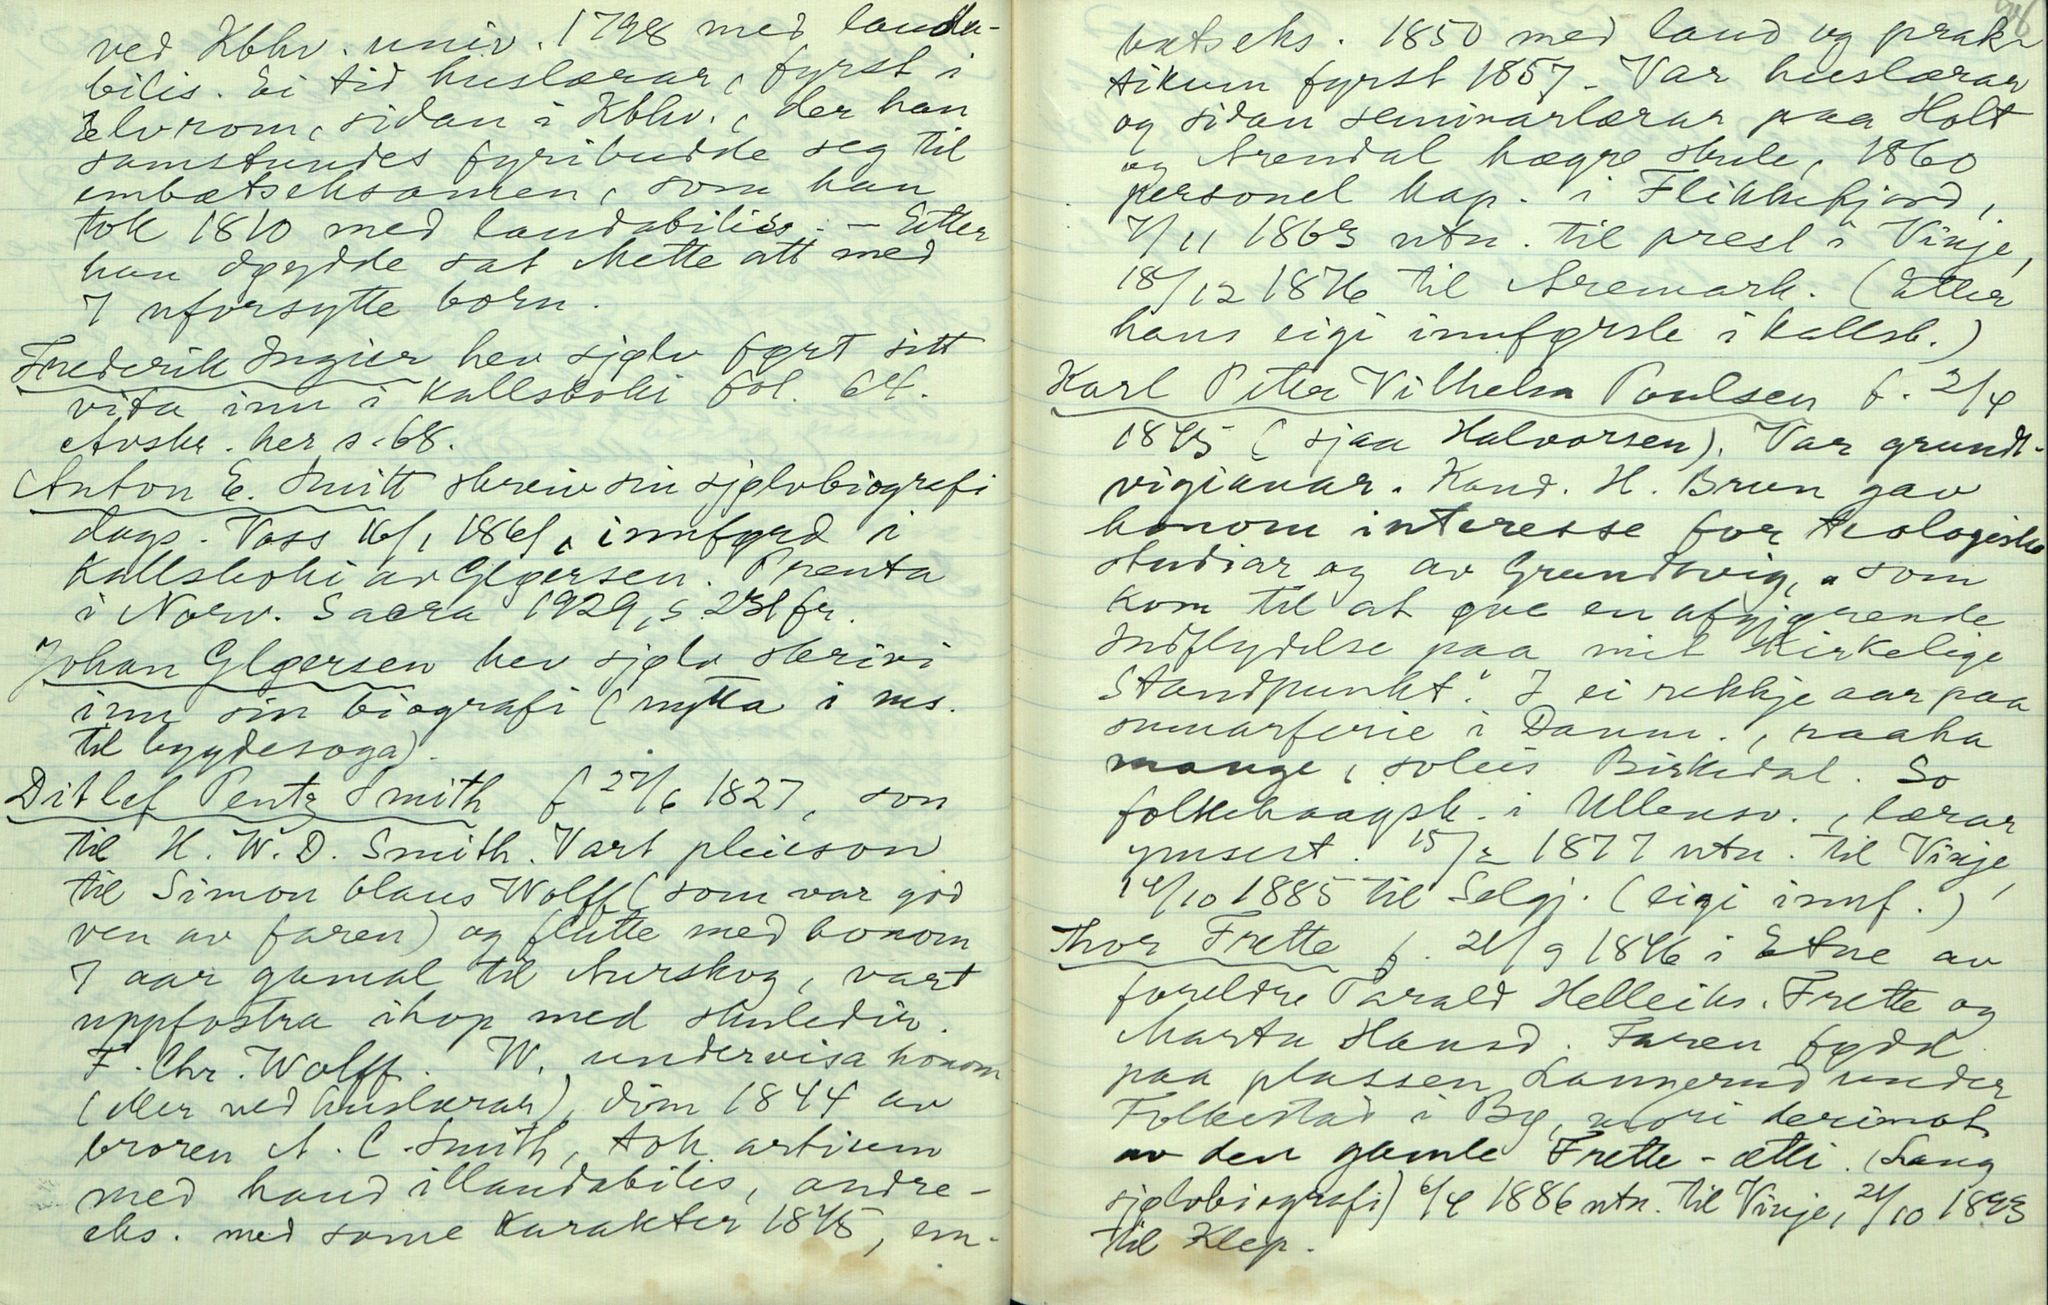 ved Kbhv. univ. 1798 med lauda-
bilis. Ei tid huslærar, fyrst i
Elvrom, sidan i Kbhv., der han
samstundes fyribudde seg til
embætseksamen, som han
tok 1810 med laudabilis. — Etter
han døydde sat Mette att med
7 uforsytte born.
Frederik Ingier hev sjølv ført sitt
vita inn i kallsboki fol. 64.
Avskr. her s. 68.
Anton E. Smitt skreiv sin sjølvbiografi
dags. Voss 16/1 1861, innførd i
kallsboki av Gløersen. Prenta
i Norv. Sacra 1929, s. 231 fr.
Johan Gløersen hev sjølv skrivi
inn sin biografi (nytta i ms.
til bygdesoga).
Ditlef Pentz Smith f 27/6 1827, son
til H. W. D. Smith. Vart pleieson
til Simon Olaus Wolff (som var god
ven av faren) og flutte med honom
7 aar gamal til Aurskog, vart
uppfostra ihop med skuledir.
F. Chr. Wolff. W. undervisa honom
(eller ved huslærar), dim 1844 av
broren A. C. Smith, tok artium
med haud illaudabilis, andre-
eks. med same karakter 1845, em-
bætseks. 1850 med laud og prak-
tikum fyrst 1857. Var huslærar
og sidan seminarlærar paa Holt
og Arendal høgre skule, 1860
personel kap. i Flikkefjord,
7/11 1863 utn. til prest i Vinje,
18/12 1876 til Aremark. (Etter
hans eigi innførsle i kallsb.)
Karl Peter Vilhelm Poulsen f. 2/4
1845 (sjaa Halvorsen). Var grundt-
vigianar. Kand. H. Brun gav
honom interesse for teologiske
studiar og av Grundtvig, "som
kom til at øve en afgjørende
Indflydelse paa mit kirkelige
Standpunkt". I ei rekkje aar paa
sumarferie i Danm., raaka
mange, soleis Birkedal. So
folkehøagsk. i Ullensv., lærar
ymsest. 15/2 1877 utn. til Vinje,
14/10 1885 til Selgj. (eigi innf.)
Thor Frette f. 21/9 1846 i Etne av
foreldre Tarald Helleiks. Frette og
Marta Hansd. Faren fødd
paa plassen Langerud under
Folkestad i Bø, mori derimot
av den gamle Frette-ætti. (Lang
sjølvbiografi) 6/4 1886 utn. til Vinje, 21/10 1893
til Klep.